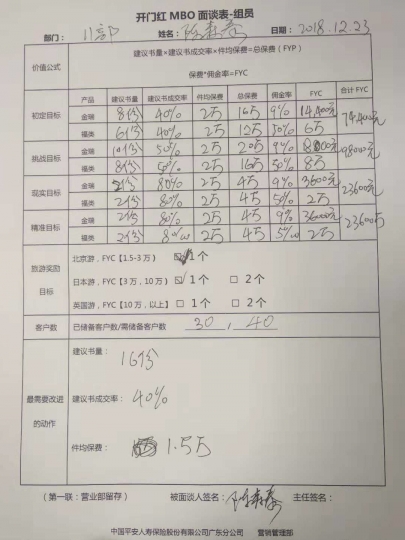 开门红 MBO 面谈表-组员
部门： 姓名： 日期：2018.12.23
价值公式
建议书量×建议书成交率×件均保费=总保费（FYP）
保费*佣金率=FYC
产品 建议书量 建议书成交率 件均保费 总保费 佣金率 FYC 合计 FYC
初定目标 金瑞 8份 40% 2万 16万 9% 14400元 74400元
福类 6份 40% 2万 12万 50% 6万
挑战目标 金瑞 10份 50% 2万 20万 9% 98000元
福类 8份 50% 2万 16万 50% 8万
现实目标 金瑞 2份 80% 2万 4万 9% 3600元 23600元
福类 2份 80% 2万 4万 50% 2万
精准目标 金瑞 2份 80% 2万 4万 9% 3600元
福类 2份 2万 4万 2万
旅游奖励
目标
北京游，FYC【1.5-3 万】 ☑1个
日本游，FYC【3 万，10 万】 ☑1个 □ 2个
英国游，FYC【10 万，以上】 □ 1个 □ 2个
客户数 已储备客户数/需储备客户数 30 , 40
最需要改进
的动作
建议书量：
16份
建议书成交率： 40%
件均保费： 1.5万
（第一联：营业部留存） 被面谈人签名： 主任签名：
中国平安人寿保险股份有限公司广东分公司 营销管理部